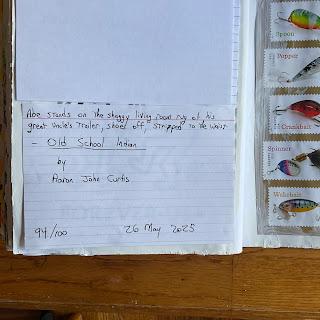 Abe stands on the shaggy living room rug of his
great uncle's trailer, shoes off, stripped to the waist
- Old School Indian
by
Aaron John Curtis
94/100
26 May 2025
Spoon
Popper
Crankbait
Spinner
Wakebait